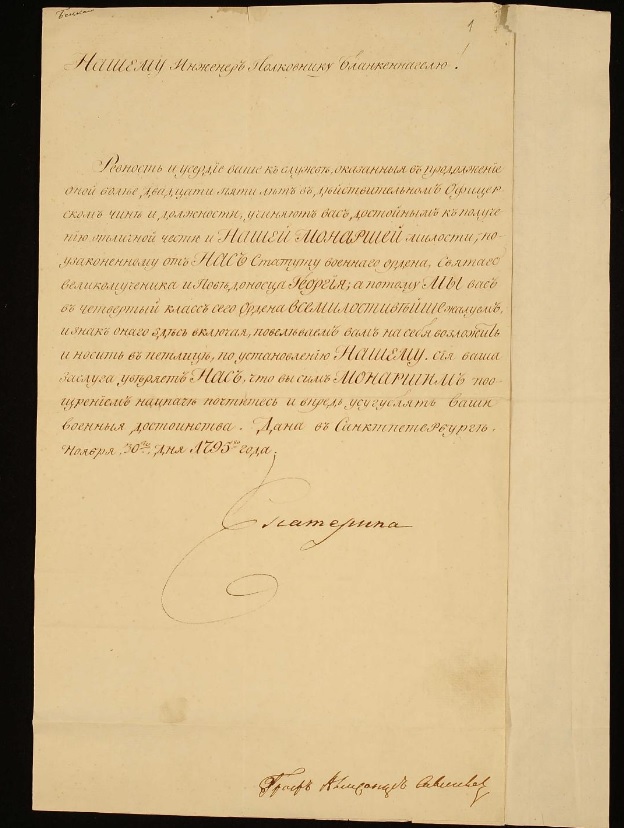 1
НАШЕМУ Инженеръ Полковнику Бланкеннаселю.
Ревность и усердіе ваше къ службѣ, оказанныя въ продолженіе
оной болѣе двадцати пяти лѣтъ въ дѣйствительномъ Офицер
скомъ чинѣ и должности, учиняютъ васъ достойнымъ къ получе
нію отличной чести и НАШЕЙ МОНАРШЕЙ милости, по
узаконенному отъ НАСЪ Статуту военнаго ордена, Святаго
великомученика и Побѣдоносца Георгія; а потому МЫ васъ
въ четвертый классъ сего Ордена ВСЕМИЛОСТИВѢЙШЕ жалуемъ,
и знакъ онаго здѣсь включая, повелѣваемъ вамъ на себя возложить
и носить въ петлицѣ, по установленію НАШЕМУ. сія ваша
заслуга увѣряетъ НАСЪ, что вы симъ МОНАРШИМЪ поо-
щреніемъ наипаче почтитесь и впредь усугублять ваши
военныя достоинства. Дана въ Санктпетербургѣ.
Ноября 30го дня 1795го года.
Екатерина
Графъ